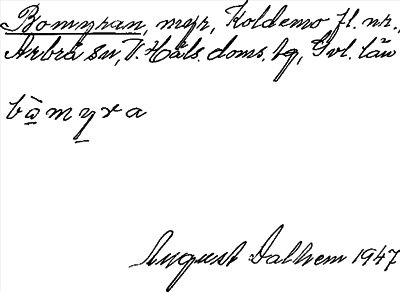 Bomyran, myr, Koldemo fl. nr.,
Arbrå sn, V. Häls. doms. tg, Gvl. län
bo̲̊̀my̲ra
August Dalhem 1947